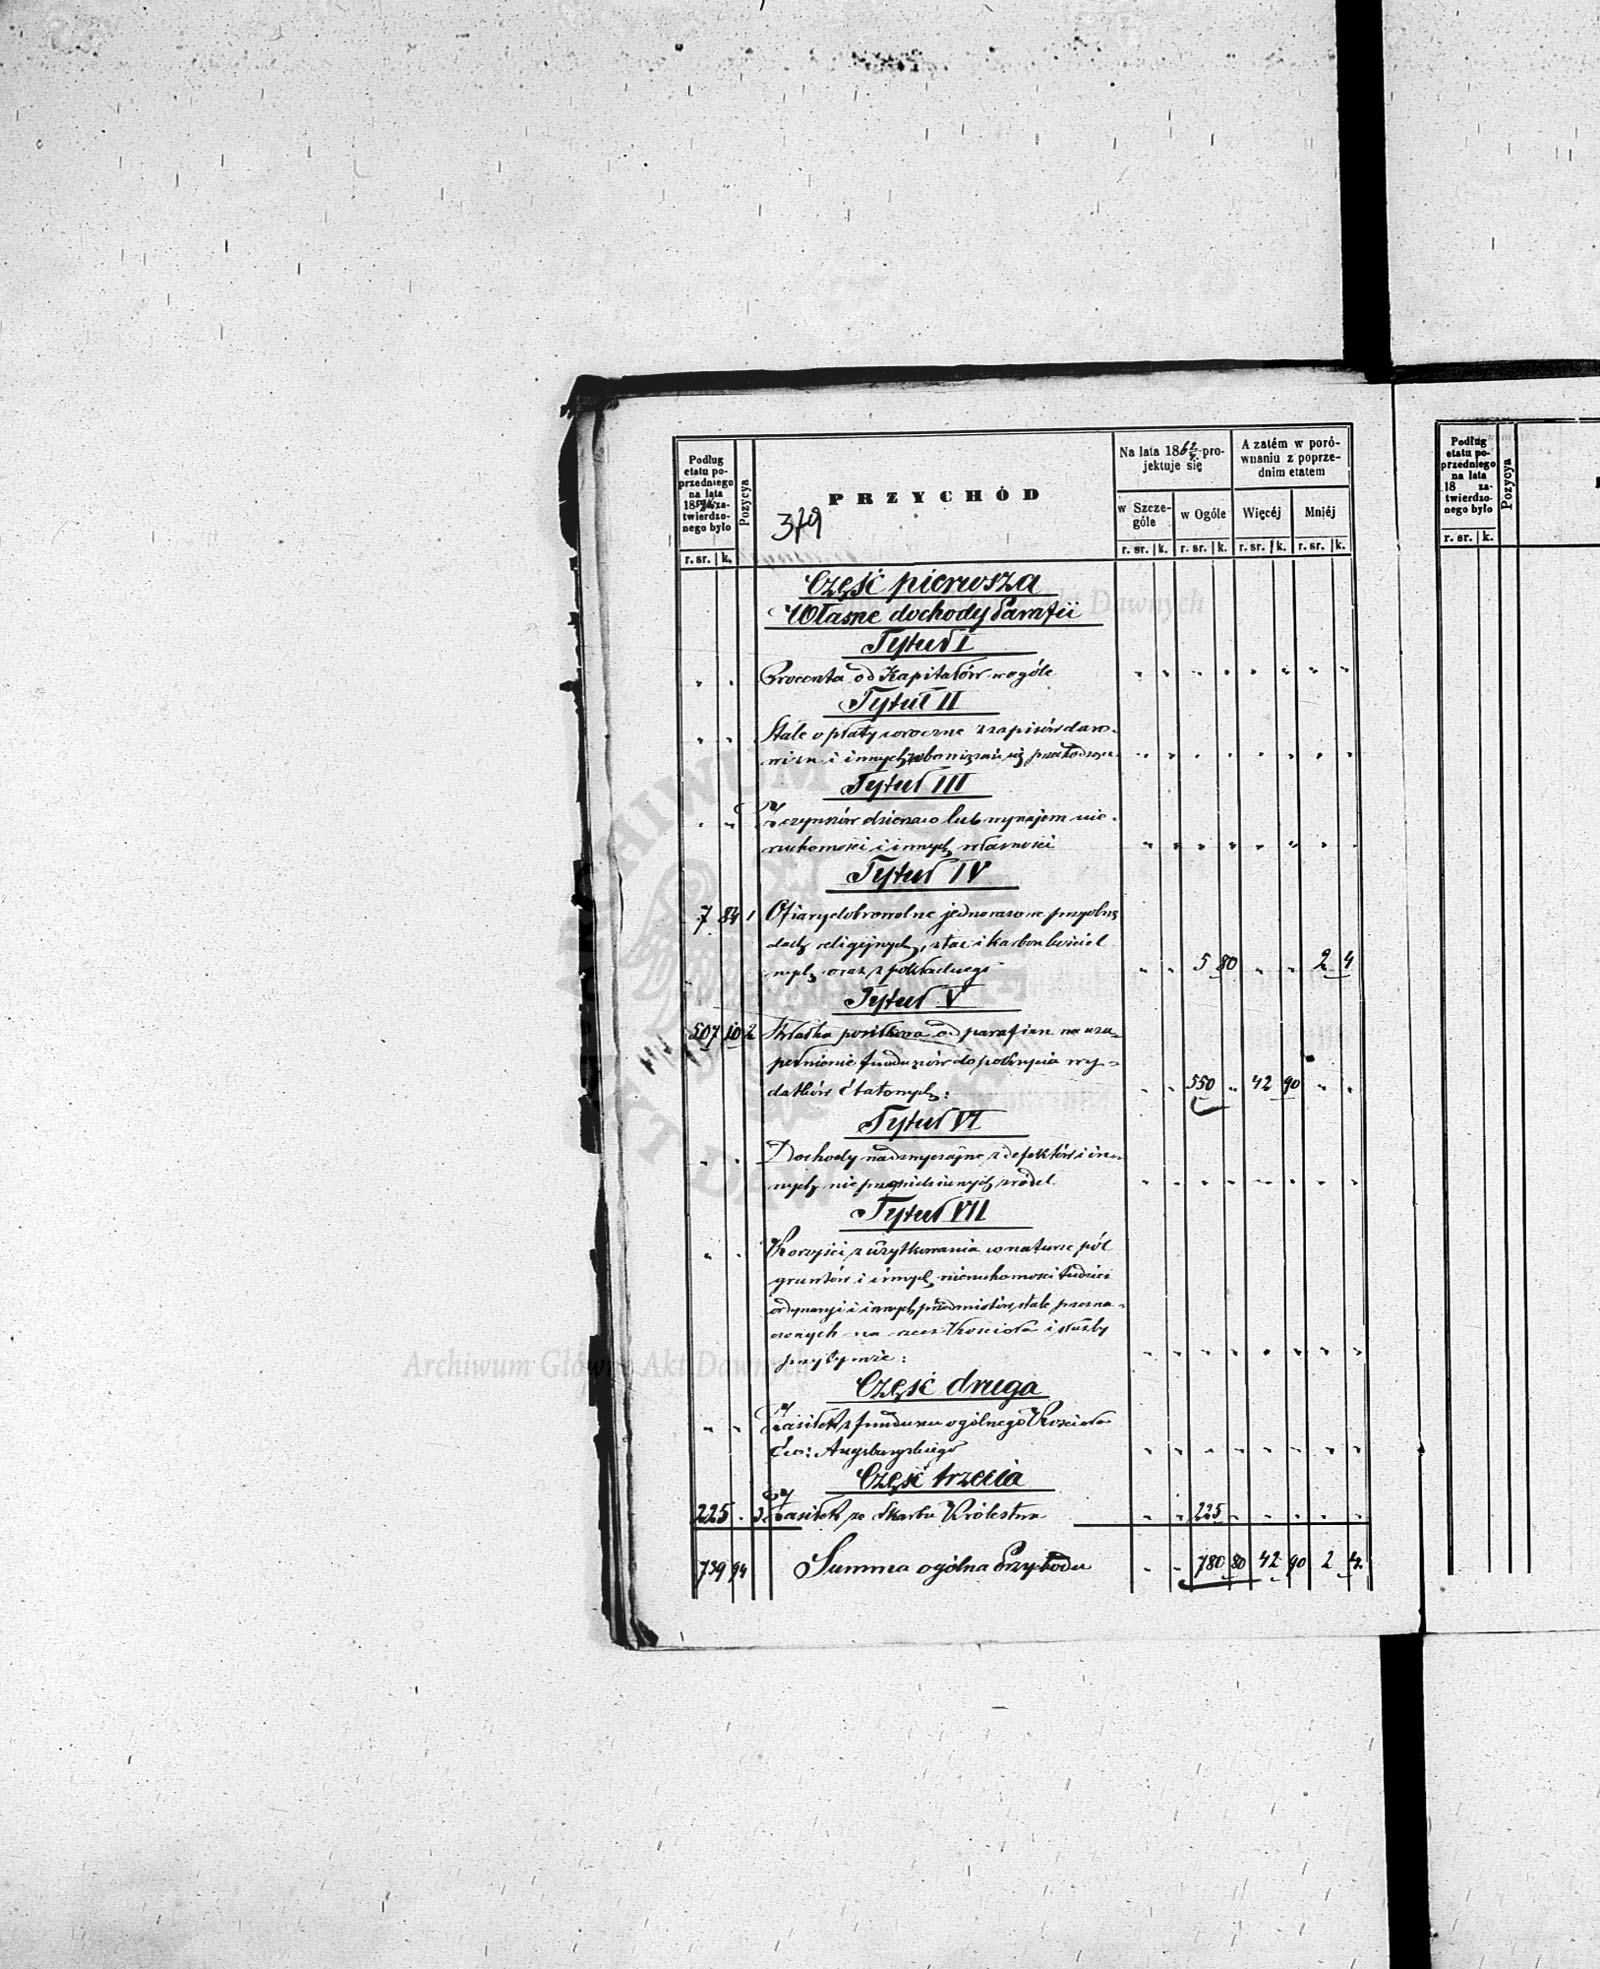 Podług
etatu po-
przedniego
na lata
18 za-
twierdzo-
nego było
r. sr. k.
Pozycya
PRZYCHÓD
379
Na lata 1862/ pro-
jektuje się
w Szcze-
góle
w Ogóle
r. sr. k. r. sr. k.
A zatém w poró-
wnaniu z poprze-
dnim etatem
Więcéj Mniéj
r. sr. k. r. sr. k.
Część pierwsza
Własne dochody Parafii
Tytuł I
Procenta od Kapitałów wogóle
Tytuł II
Stałe opłaty coroczne z zapisów daro-
wizn i innych zobowiązań
Tytuł III
Z czynszów dzierżaw lub wynajem nie-
ruchomości i innych własności
Tytuł IV
7 84 1 Ofiary dobrowolne jednorazowe przy obrzę
dach religijnych, z tac i karbon kościel
nych oraz z pokładnego 5 80 2 4
Tytuł V
507 10 2 Składka posiłkowa od parafian na uzu-
pełnienie funduszów do pokrycia wy-
datków Etatowych: 550 42 90
Tytuł VI
Dochody nadzwyczajne z defektów i in-
nych nie przewidzianych źródeł
Tytuł VII
Korzyści z użytkowania w naturze pól
gruntów i innych nieruchomości tudzież
ordynaryi i innych przedmiotów stale przezna-
czonych na rzecz Kościoła i służby
przy tymże:
Część druga
Zasiłek z funduszu ogólnego Kościoła
Ew: Augsburgskiego
Część trzecia
225 3 Zasiłek ze Skarbu Królestwa 225
739 94 Summa ogólna Przychodu 780 80 42 90 2 4
Podług
etatu po-
przedniego
na lata
18 za-
twierdzo-
nego było
r. sr. k.
Pozycya
Archiwum Główne Akt Dawnych